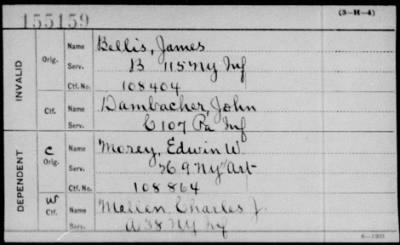 155159
(3-H-4)
INVALID
Orig.
Name Bellis, James
Serv. B 115 NY Inf
Ctf. No. 108404
Ctf.
Name Dambacher, John
Serv. C 107 Pa Inf
DEPENDENT
C
Orig.
Name Morey, Edwin W.
Serv. 9 NY Art
Ctf. No. 108864
W
Ctf.
Name Mellen Charles J.
Serv. A 38 NY